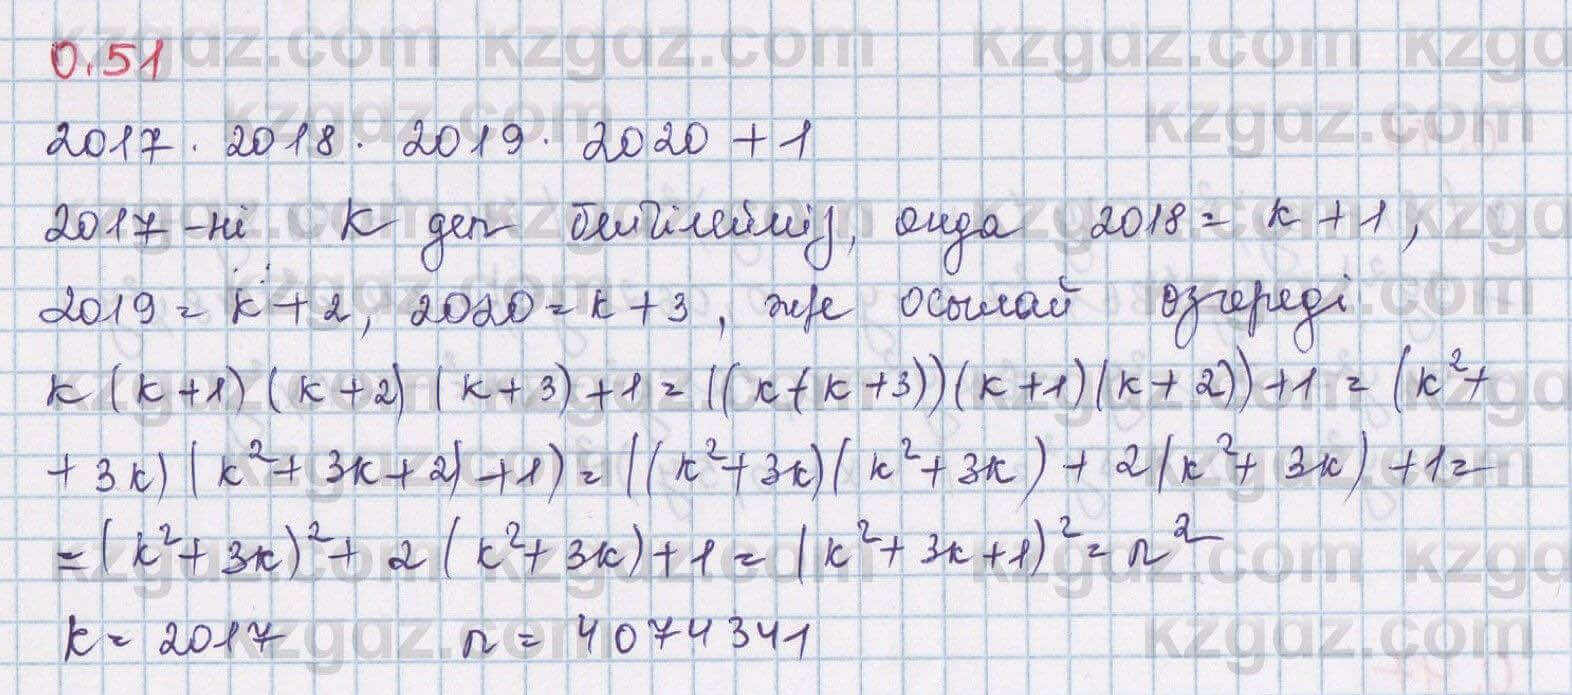 0.51
2017 · 2018 · 2019 · 2020 + 1
2017-ні к деп белгілейміз, онда 2018 = к + 1,
2019 = к + 2, 2020 = к + 3, же осылай өзгереді
к (к + 1) (к + 2) (к + 3) + 1 = ((к (к + 3))(к + 1)(к + 2)) + 1 = (к² +
+ 3к) (к² + 3к + 2) + 1) = ((к² + 3к)(к² + 3к) + 2(к² + 3к) + 1 =
= (к² + 3к)² + 2(к² + 3к) + 1 = (к² + 3к + 1)² = n²
к = 2017 n = 4074341
kzgdz.com